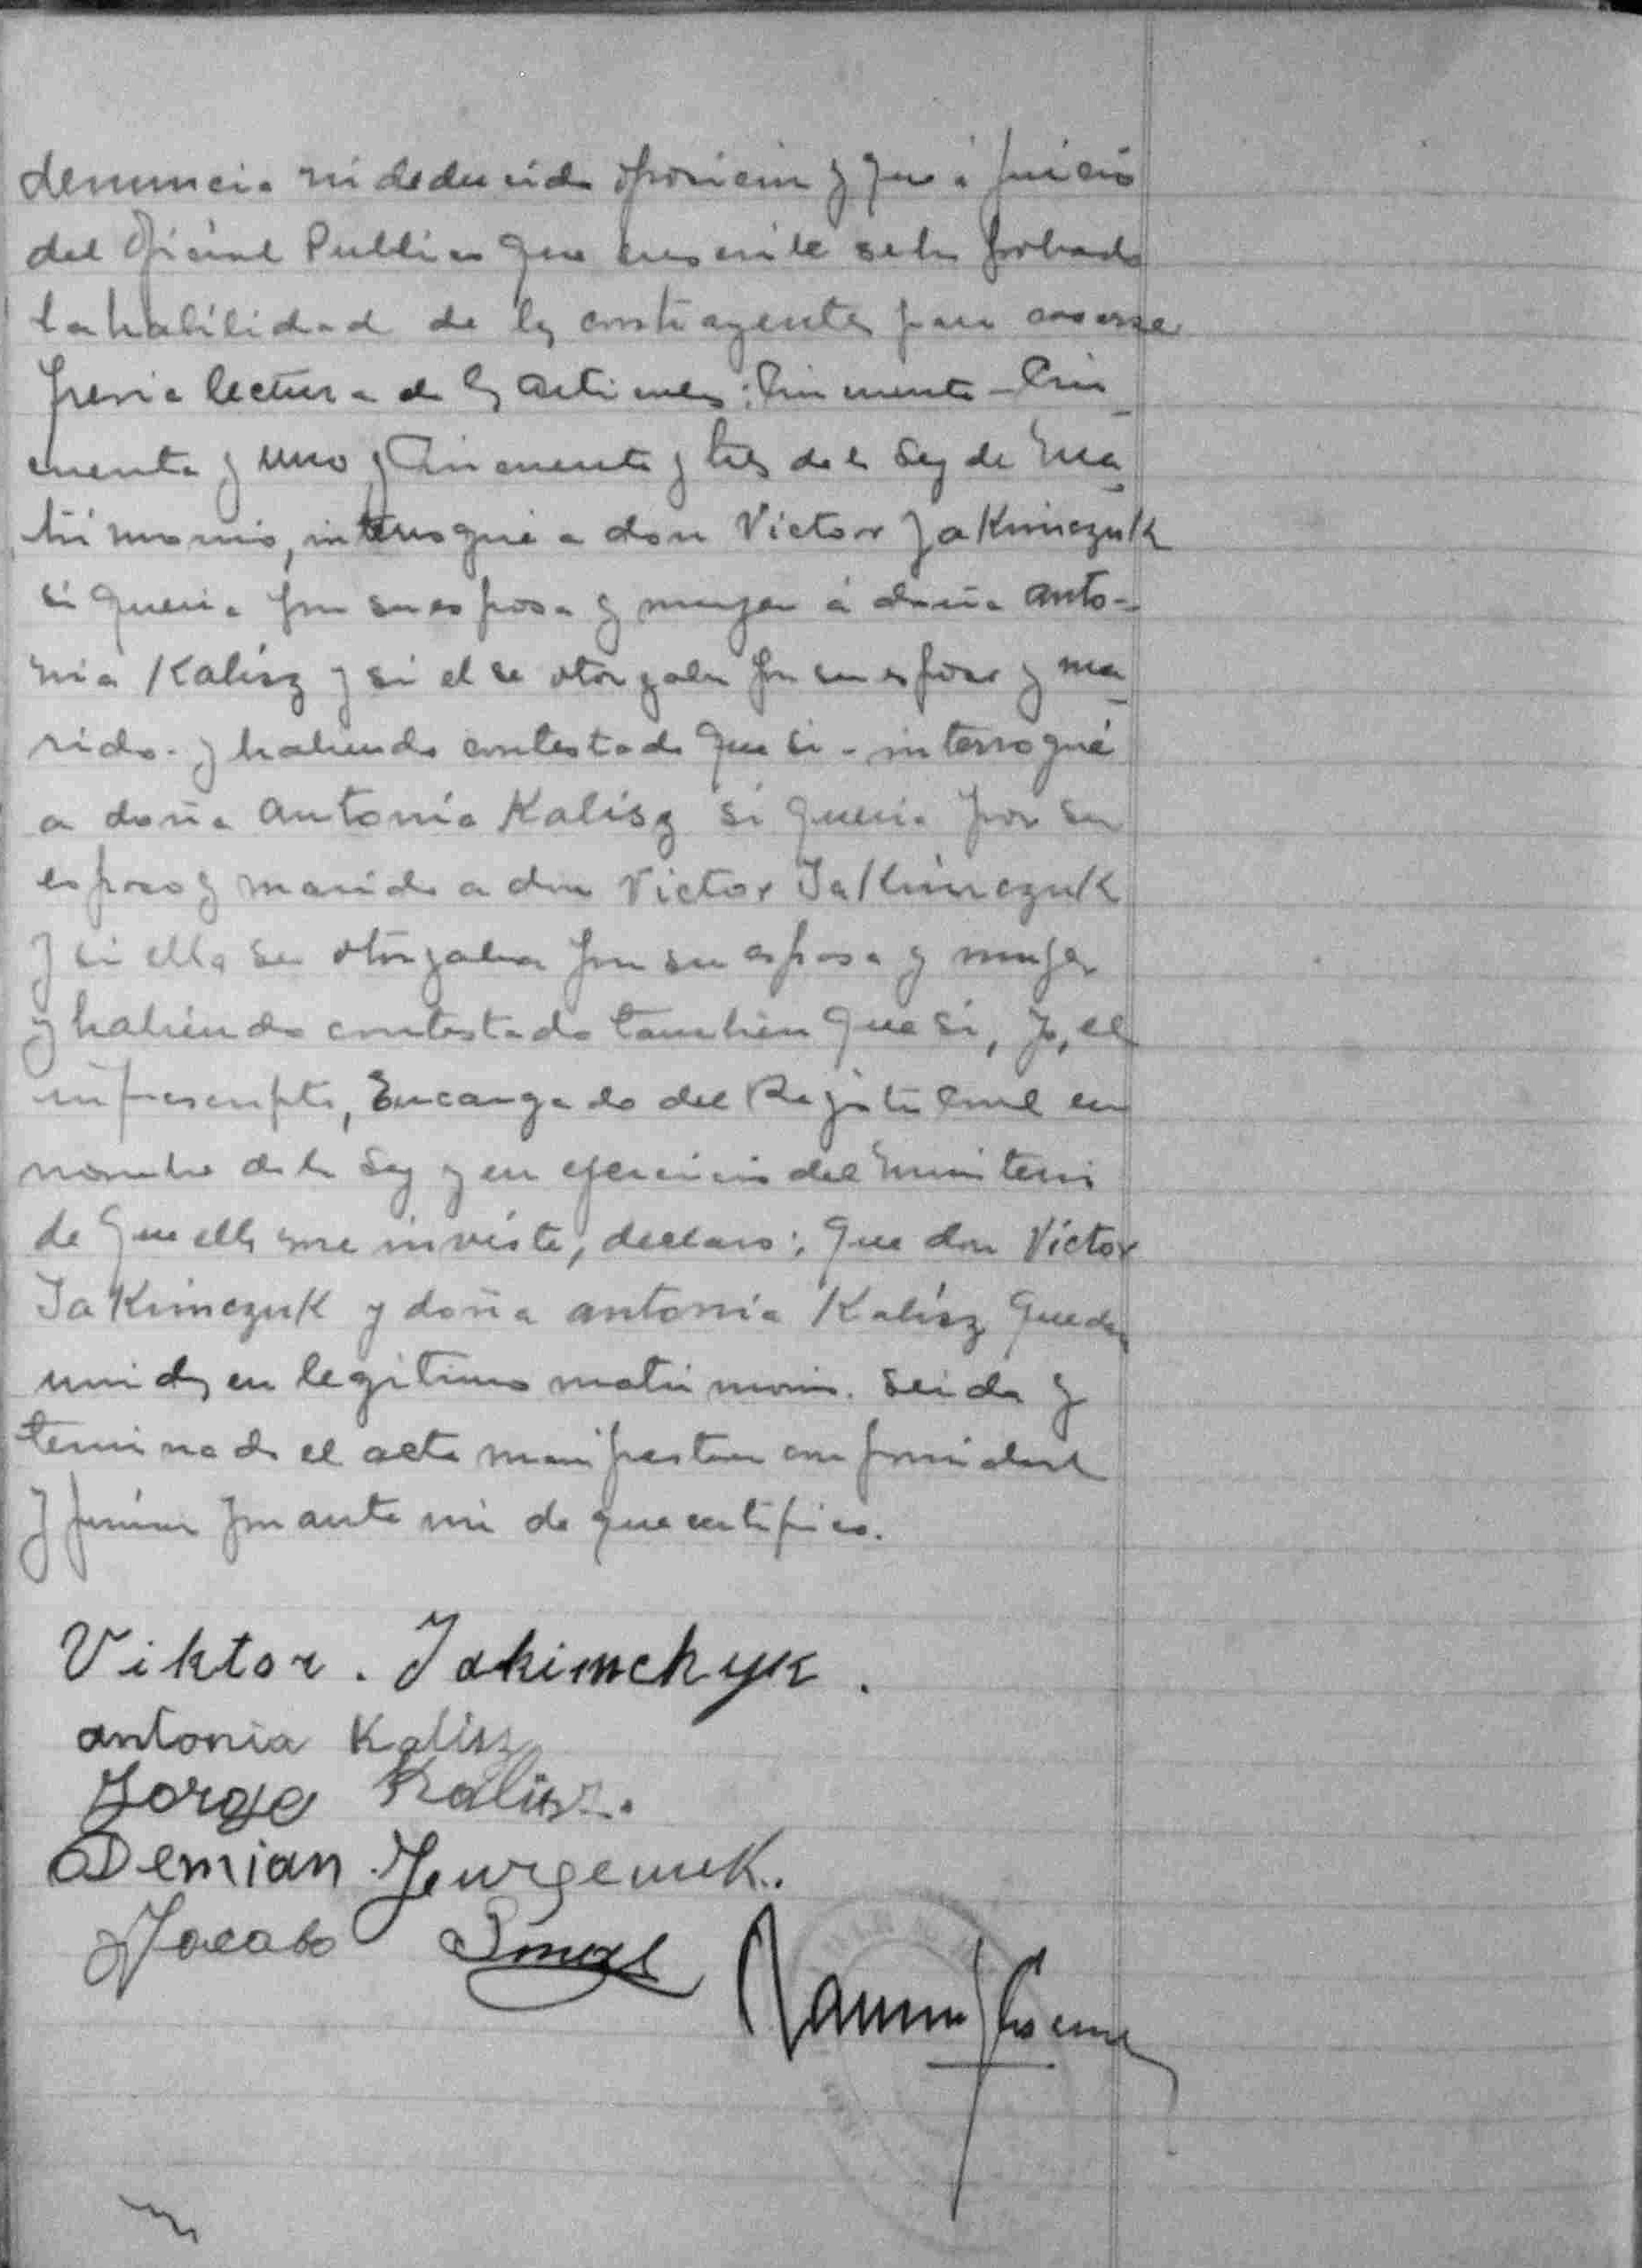 denuncia ni deducido oposicion y que á juicio
del Oficial Publico que suscribe se ha probado
la habilidad de los contrayentes para casarse
previa lectura de los articulos: Cincuenta - Cin-
cuenta y uno y Cincuenta y tres de la Ley de Ma-
trimonio, interrogué a don Victor Jakimczuk
si queria por su esposa y mujer á doña Anto-
nia Kalisz y si el se otorgaba por su esposo y ma-
rido - y habiendo contestado que si - interrogué
a doña Antonia Kalisz si queria por su
esposo y marido a don Victor Jakimczuk
y si ella se otorgaba por su esposa y mujer
y habiendo contestado tambien que si, yo, el
infrascripto, Encargado del Registro Civil en
nombre de la Ley y en ejercicio del Ministerio
de que ella me inviste, declaro: que don Victor
Jakimczuk y doña Antonia Kalisz quedan
unidos en legitimo matrimonio. Leida y
terminada el acta manifestaron conformidad
y firman por ante mi de que certifico.
Viktor. Jakimchyk.
antonia Kalisz
Jorge Kalisz.
Demian
Jacabo